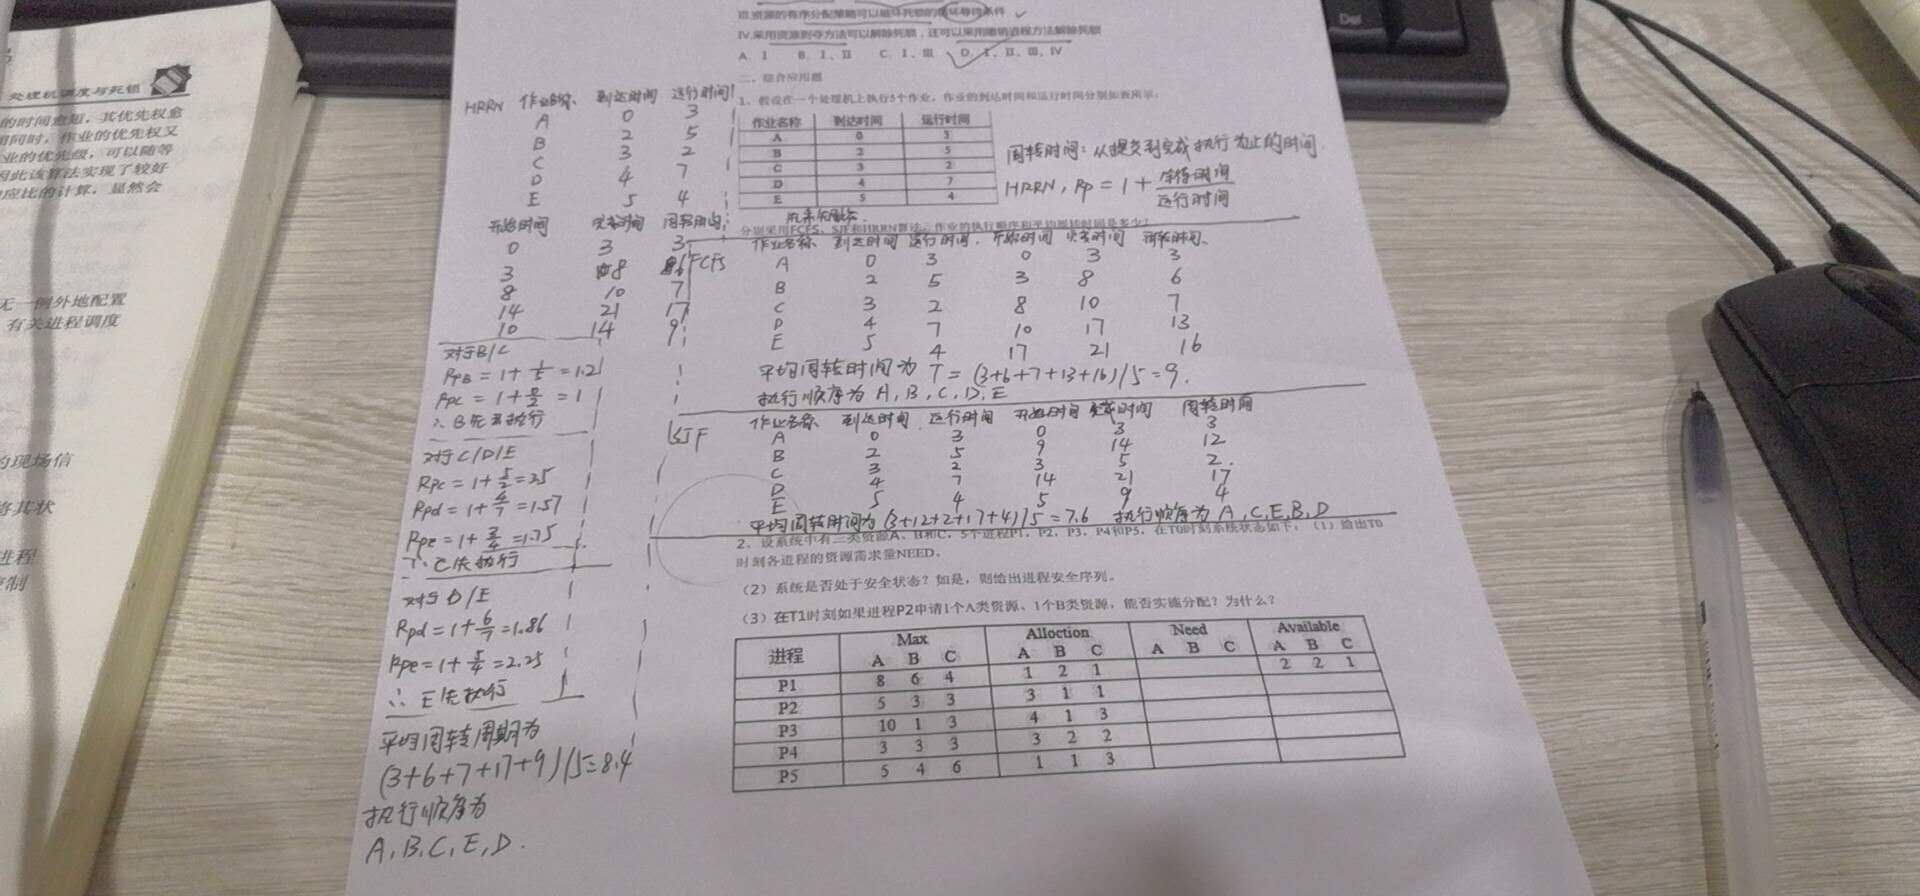 处理机调度与死锁
的时间愈短，其优先权愈
相同时，作业的优先权又
业的优先级，可以随等
因此该算法实现了较好
应比的计算，显然会
无一例外地配置
有关进程调度
的现场信
将其状
进程
制
Del
III.资源的有序分配策略可以破坏死锁的循环等待条件
IV.采用资源剥夺方法可以解除死锁，还可以采用撤销进程方法解除死锁
A. I B. I、II C. I、III D. I、II、III、IV
二、综合应用题
1、假设在一个处理机上执行5个作业，作业的到达时间和运行时间分别如表所示。
作业名称 到达时间 运行时间
A 0 3
B 2 5
C 3 2
D 4 7
E 5 4
周转时间：从提交到完成执行为止的时间
HRRN, Rp = 1 + 等待时间/运行时间
分别采用FCFS、SJF和HRRN算法，作业的执行顺序和平均周转时间是多少？
HRRN 作业名称 到达时间 运行时间
A 0 3
B 2 5
C 3 2
D 4 7
E 5 4
开始时间 完成时间 周转时间
0 3 3
3 8 6
8 10 7
14 21 17
10 14 9
对于B/C
RpB = 1 + 1/5 = 1.2
Rpc = 1 + 0/2 = 1
∴ B先执行
对于C/D/E
Rpc = 1 + 5/2 = 3.5
Rpd = 1 + 4/7 = 1.57
Rpe = 1 + 3/4 = 1.75
∴ C先执行
对于D/E
Rpd = 1 + 6/7 = 1.86
Rpe = 1 + 5/4 = 2.25
∴ E先执行
平均周转周期为
(3+6+7+17+9)/5=8.4
执行顺序为
A, B, C, E, D.
FCFS
作业名称 到达时间 运行时间 开始时间 完成时间 周转时间
A 0 3 0 3 3
B 2 5 3 8 6
C 3 2 8 10 7
D 4 7 10 17 13
E 5 4 17 21 16
平均周转时间为 T = (3+6+7+13+16)/5 = 9.
执行顺序为 A, B, C, D, E
SJF
作业名称 到达时间 运行时间 开始时间 完成时间 周转时间
A 0 3 0 3 3
B 2 5 9 14 12
C 3 2 3 5 2.
D 4 7 14 21 17
E 5 4 5 9 4
平均周转时间为 (3+12+2+17+4)/5 = 7.6 执行顺序为 A, C, E, B, D
2、设系统中有三类资源A、B和C，5个进程P1、P2、P3、P4和P5，在T0时刻系统状态如下：（1）给出T0
时刻各进程的资源需求量NEED。
（2）系统是否处于安全状态？如是，则给出进程安全序列。
（3）在T1时刻如果进程P2申请1个A类资源、1个B类资源，能否实施分配？为什么？
进程 Max Alloction Need Available
A B C A B C A B C A B C
P1 8 6 4 1 2 1 2 2 1
P2 5 3 3 3 1 1
P3 10 1 3 4 1 3
P4 3 3 3 3 2 2
P5 5 4 6 1 1 3